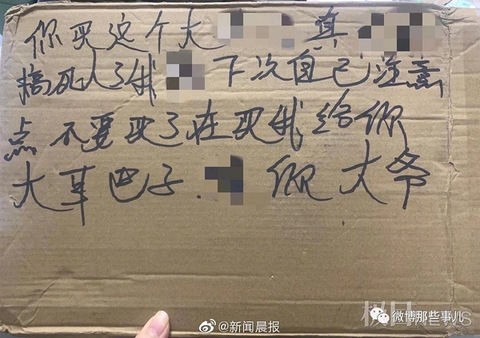 你买这个大 真
搞死人了我 下次自己注意
点 不要买了在买我给你
大草巴子. 你大爷
@新闻晨报
微博那些事儿